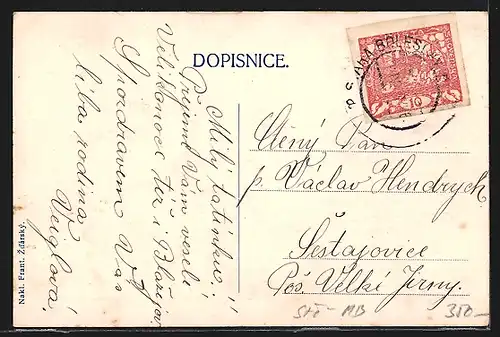 DOPISNICE.
Milý tatínku!
Příjemné Vám veselé
Velikonoce též i Blažejov
Spozdravem Vas
líba rodina
Veiglova!
Ctěný Pan
p. Václav Hendrych
Šestajovice
Pos. Velké Jirny.
Nakl. Frant. Žďárský.
10
MB
350-